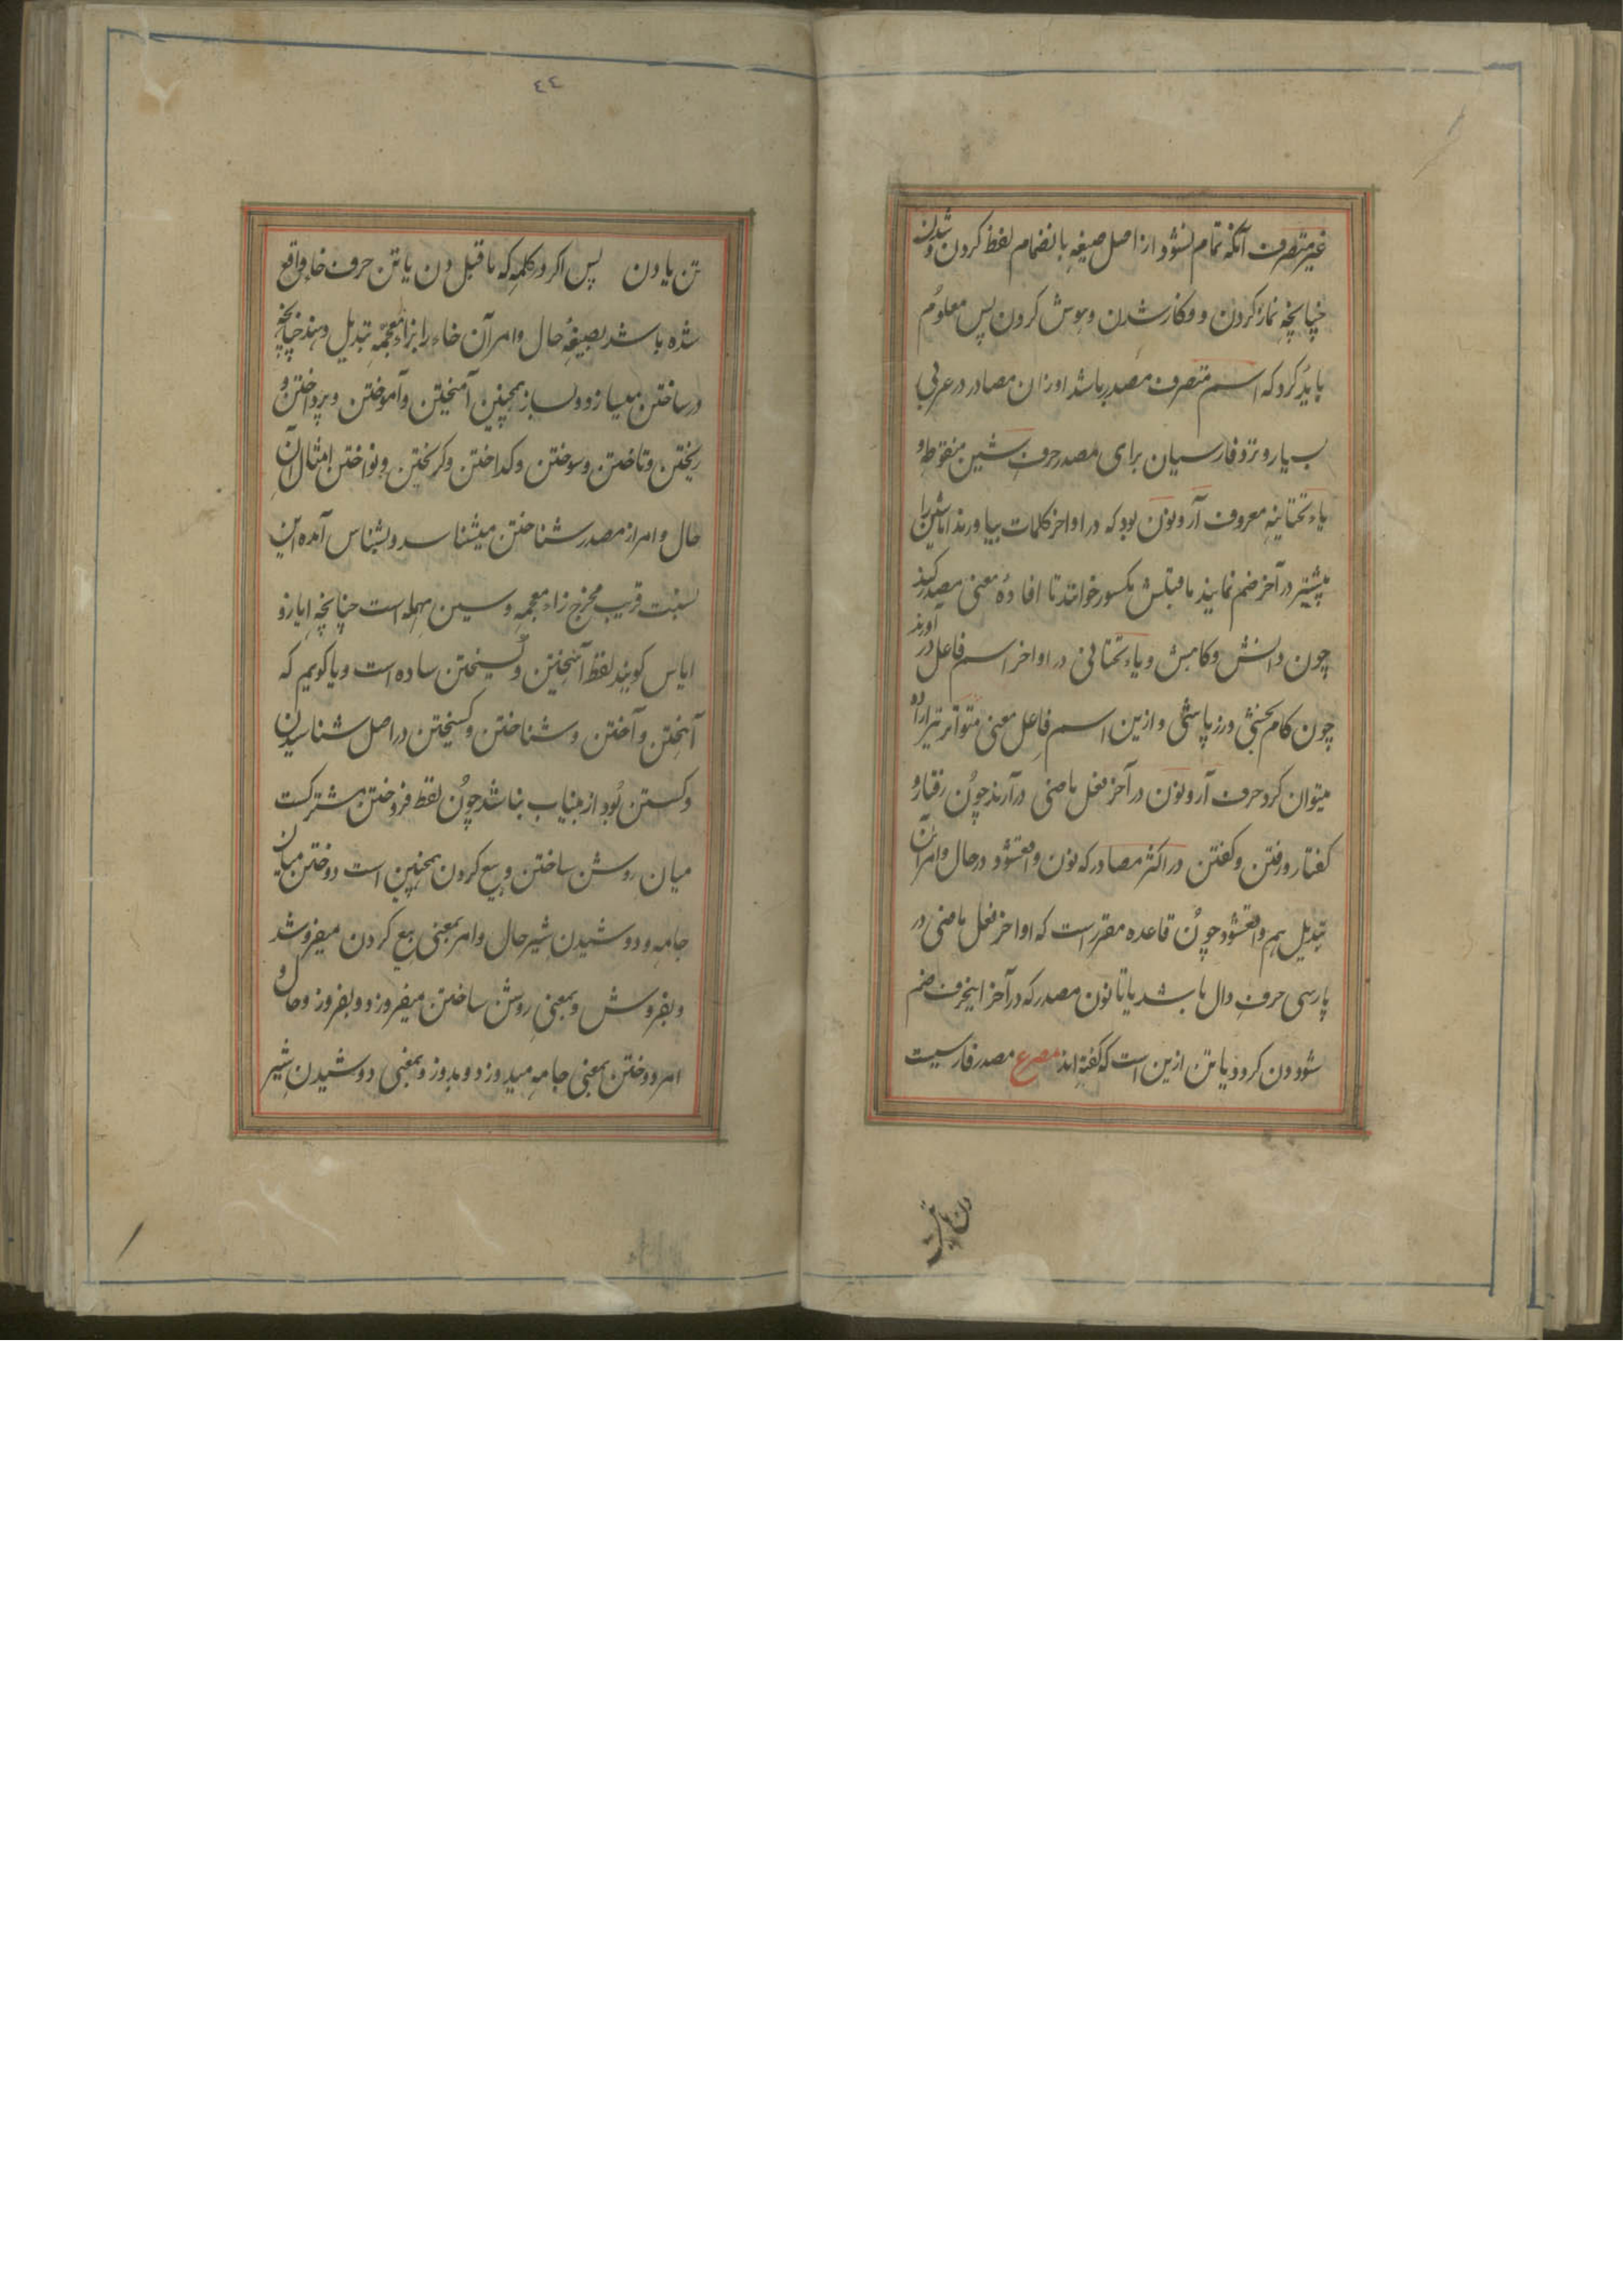 غیر متصرف آنکه تمام نشود از اصل صیغه بانضمام لفظ کردن و شدن
چنانچه نماز کردن و وکار شدن و هوش کردن پس معلوم
باید کرد که اسم متصرف مصدر باشد اوزان مصادر در عربی
بسیار و نزد فارسیان برای مصدر حرف شین منقوطه و
یاء تحتانیه معروف آر و نون بود که در اواخر کلمات بیاورند اما شین را
بیشتر در آخر ضم نمایند ماقبلش مکسور خوانند تا افادهٔ معنی مصدر کند
چون دانش و کاهش و یاء تحتانی در اواخر اسم فاعل در آورند
چون کام بخشی و زر پاشی و ازین اسم فاعل معنی متواتر نیز اراده
میتوان کرد حرف آر و نون در آخر فعل ماضی درآرند چون رفتار و
گفتار و رفتن و گفتن در اکثر مصادر که نون واقعشود در حال و امر آن
تبدیل هم واقعشود چون قاعده مقرر است که اواخر فعل ماضی در
پارسی حرف دال باشد یا تا نون مصدر که در آخر اینحرف ضم
شود دن گردد یا تن ازین است که گفته اند مصرع مصدر فارسیست
دن یا تن
٤٤
تن یا دن پس اگر در کلمه که ماقبل دن یا تن حرف خا واقع
شده باشد بصیغهٔ حال و امر آن خاء را بزاء معجمه تبدیل دهند چنانچه
در ساختن میسازد و بساز همچنین آمیختن و آموختن و پرداختن و
ریختن و تاختن و سوختن و گداختن و گریختن و نواختن امثال آن
حال و امر از مصدر شناختن میشناسد و بشناس آمده این
نسبت قریب مخرج زاء معجمه و سین مهمله است چنانچه ایاز و
ایاس گویند لفظ آمیختن و گسیختن ساده است و یا گوییم که
آمیختن و آختن و شناختن و گسیختن در اصل شناسیدن
و گسستن بود ازینباب نباشد چون لفظ فروختن مشترکست
میان روشن ساختن و بیع کردن همچنین است دوختن میان
جامه و دوشیدن شیر حال و امر بمعنی بیع کردن میفروشد
و بفروش و بمعنی روشن ساختن میفروزد و بفروز و حال و
امر دوختن بمعنی جامه میدوزد و بدوز و بمعنی دوشیدن شیر